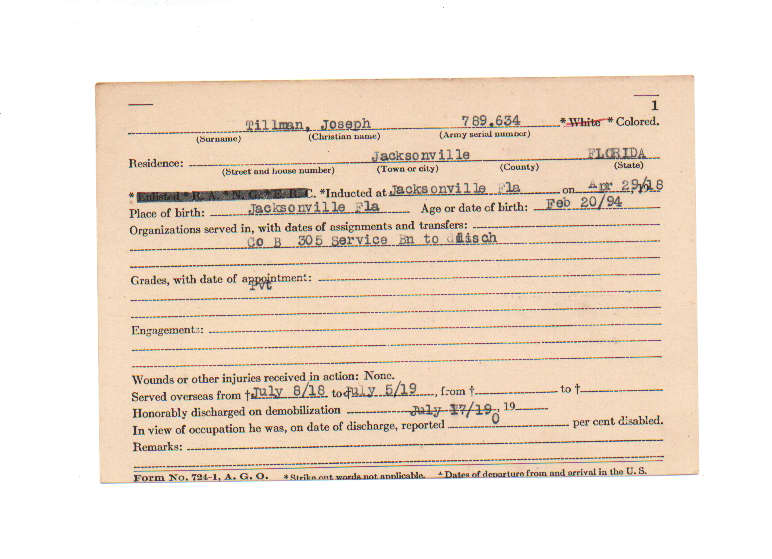 1
Tillman, Joseph 789,634 *White *Colored.
(Surname) (Christian name) (Army serial number)
Residence: Jacksonville FLORIDA
(Street and house number) (Town or city) (County) (State)
*Enlisted *R. A. *N. G. *E. R. C. *Inducted at Jacksonville Fla on Apr 29/18
Place of birth: Jacksonville Fla Age or date of birth: Feb 20/94
Organizations served in, with dates of assignments and transfers:
Co B 305 Service Bn to disch
Grades, with date of appointment:
Pvt
Engagements:
Wounds or other injuries received in action: None.
Served overseas from † July 8/18 to † July 5/19, from † to †
Honorably discharged on demobilization July 17/19, 19
In view of occupation he was, on date of discharge, reported 0 per cent disabled.
Remarks:
Form No. 724-1, A. G. O. *Strike out words not applicable. † Dates of departure from and arrival in the U. S.